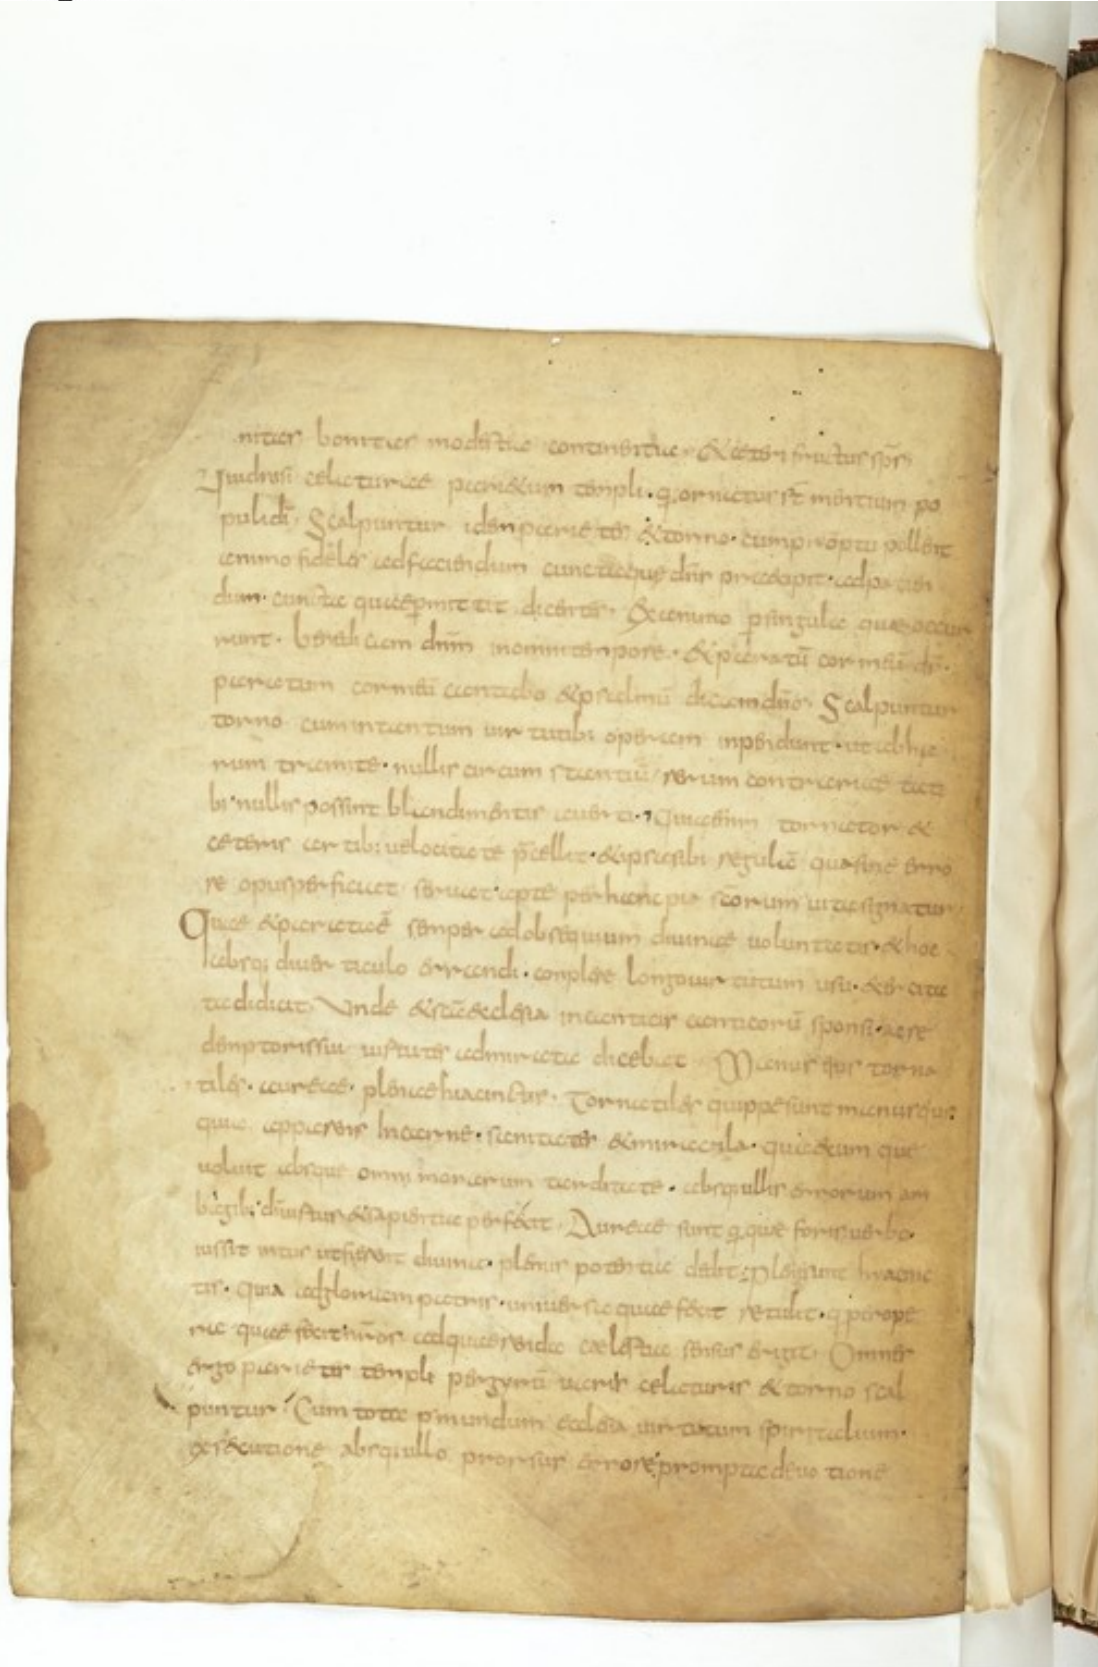 nitas bonitas modestia continentia · & ceteri fructus sp̄s
Quadrasi celaturae parietum templi · q; ornatus st̄ mentium po
puli dī · Scalpuntur idem parietes & torno · cum prōptu pollent
animo fideles ad faciendum cuncta que dn̄s praecepit · ad patien
dum · cuncta quae p̄mittit dicentes · & animo p̄ singula quae occur
runt · benedicam dnm̄ in omni tempore · & paratū cor meū dš ·
paratum cor meū cantabo & psalmū dicam dn̄o · Scalpuntur
torno cum intantum virtutibꝰ operam inpendunt · ut ab hac
rum tramite · nullis circumstantiū rerum contrarietati
bꝰ nullis possint blandimentis averti · Quia enim tornator &
ceteris artibꝰ velocitate p̄cellit · & ipsa sibi regulā qua sine erro
re opus perficiat servat · apte per hanc pia scōrum vita signatur ·
Quae & parata ē semper ad obsequium divinae voluntatis · & hoc
absq; diverticulo errandi · conplere longo virtutum usu · exercita
ta didicit · Unde & scā ecclesia in canticis canticorū sponsi · ac re
demptoris sui virtutes admirata dicebat · Manus eius torna
tiles · aureae · plenae hiacinctus · Tornatiles quippe sunt manus eius ·
quia apparens in carne · sanitates & miracula · quaecumque
voluit absque omni morarum tarditate · absq; ullis errorum am
bagibꝰ dī virtus & sapientia perfecit · Aureae sunt q; quae foris verbo ·
iussit intus ut fierent divinae · plenus potentia debit · Plenae sunt hiacinc
tis · quia ad gloriam patris · universa quae fecit retulit · q; p̄ ope
ra quae fecit nr̄os ad quaerenda caelestia sensus erigit · Omnes
ergo parietes templi per gyrū variis celaturis & torno scal
puntur · Cum tota p̄ mundum ecclesia virtutum spiritalium ·
exsecutione absq; ullo prorsus errore prompta devotione